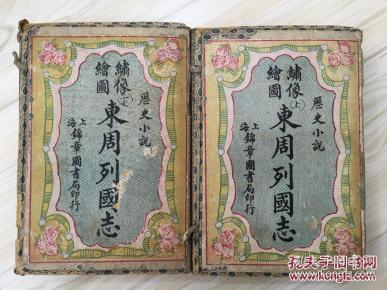 歷史小說
繡像
繪圖
下
東周列國志
上海錦章圖書局印行
歷史小說
繡像
繪圖
上
東周列國志
上海錦章圖書局印行
孔夫子旧书网